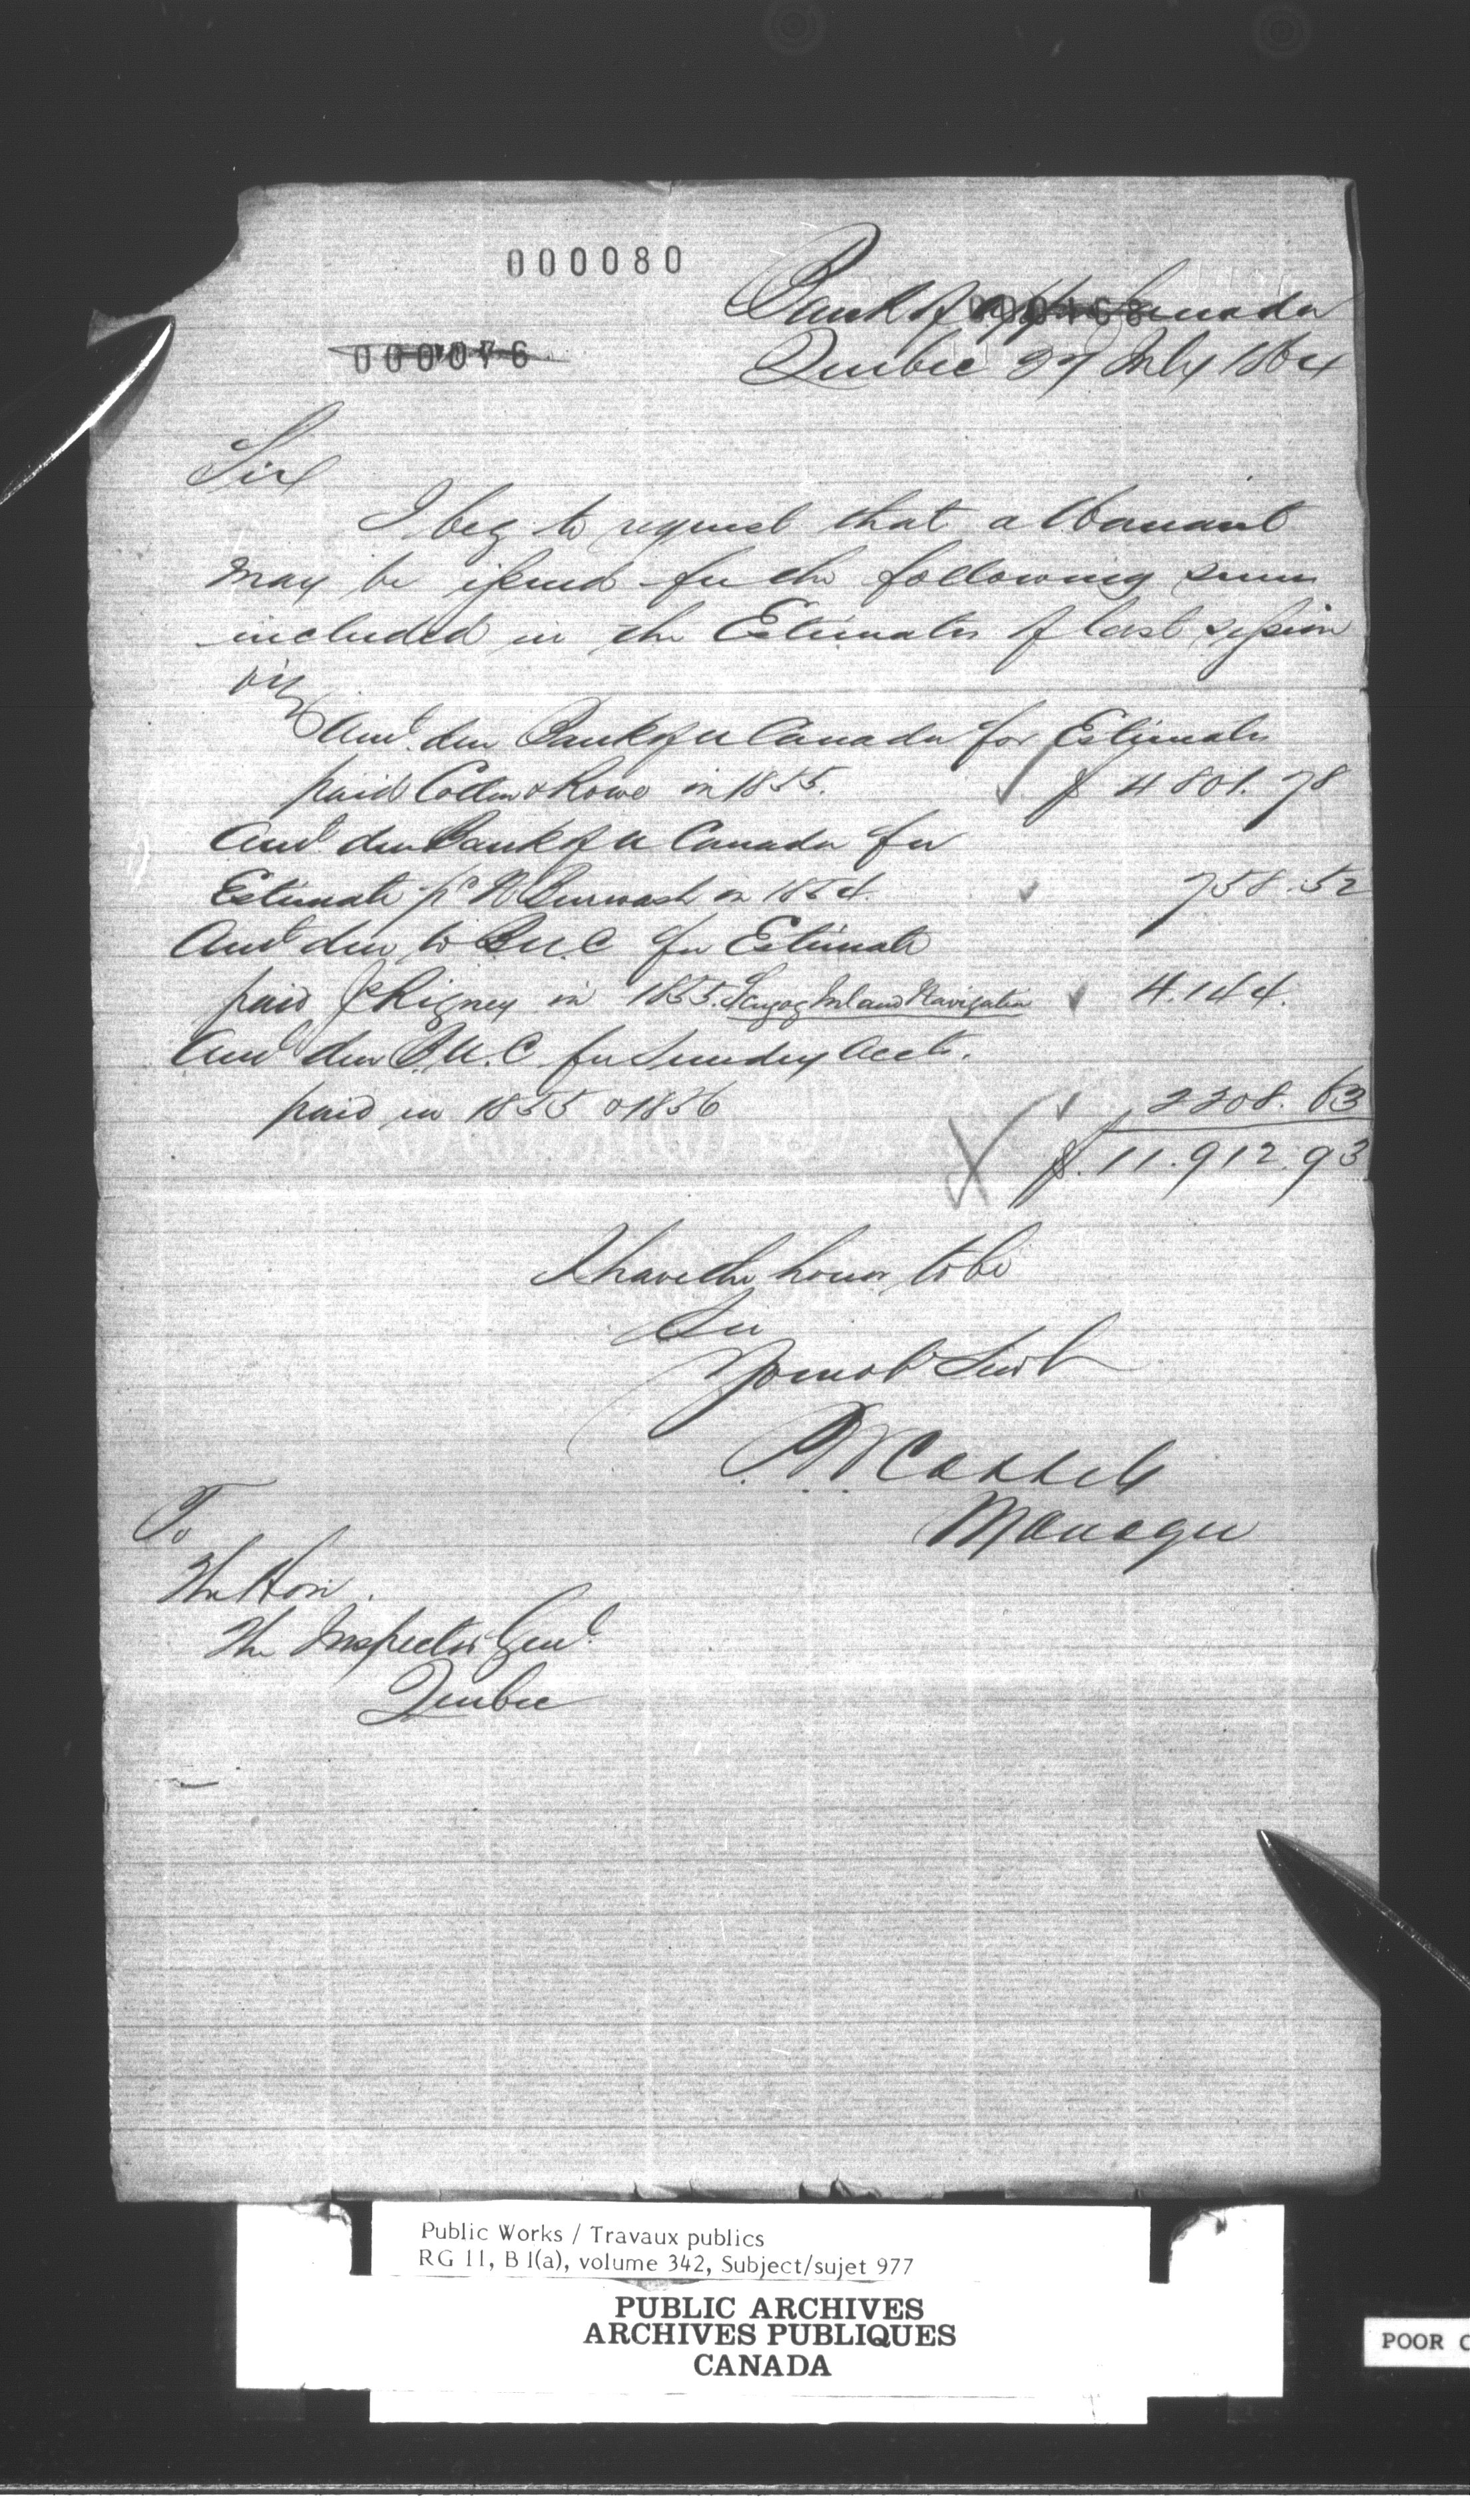 000080
Bank of Upper Canada
000168
000076
Quebec 27 July 1864
Sir
I beg to request that a Warrant
may be issued for the following sums
included in the Estimates of last session
viz
Amt. due Bank of U Canada for Estimates
paid Cotton & Rowe in 1855. $ 4801.78
Amt. due Bank of U Canada for
Estimate pd N Burwash in 1854. 758.52
Amt due to B.U.C for Estimate
paid Jc Rigney in 1855. Scugog Inland Navigation 4.144.
Amt due B.U.C for Sundry Accts.
paid in 1855 & 1856 2208.63
$.11.912.93
I have the honor to be
Sir
Your ob Servt
R Cassels
Manager
To
The Hon.
The Inspector Genl.
Quebec
Public Works / Travaux publics
RG 11, B 1(a), volume 342, Subject/sujet 977
PUBLIC ARCHIVES
ARCHIVES PUBLIQUES
CANADA
POOR